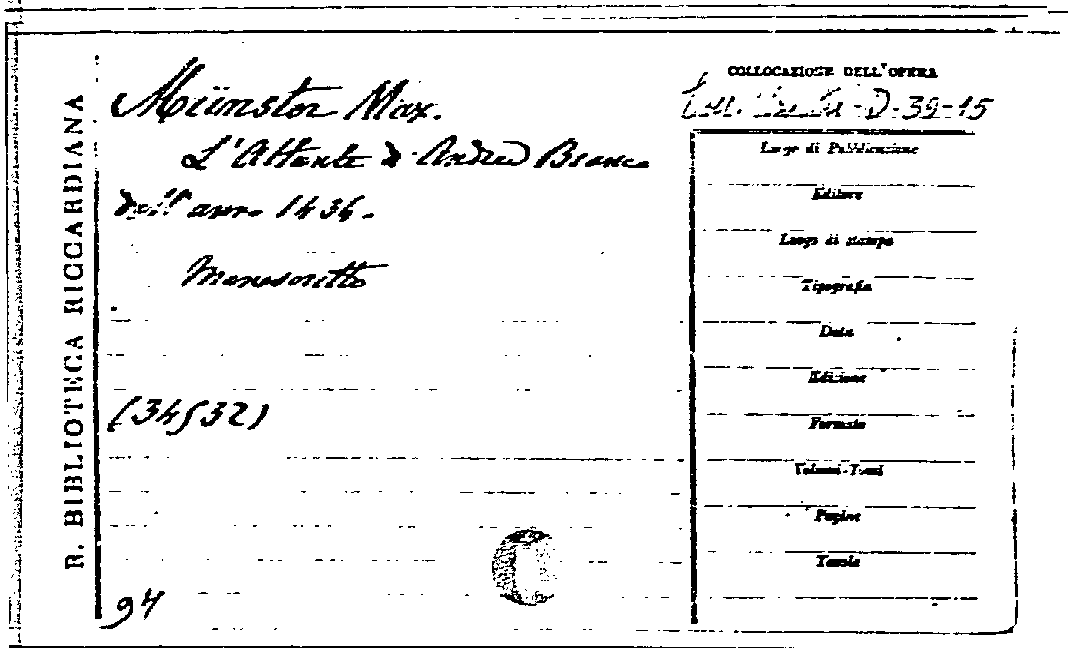 R. BIBLIOTECA RICCARDIANA
Münster Max.
L'Atlante d'Andrea Bianco
dell'anno 1436.
Manoscritto
(34532)
94
COLLOCAZIONE DELL'OPERA
D-39-15
Luogo di Pubblicazione
Editore
Luogo di stampa
Tipografia
Data
Edizione
Formato
Volumi-Tomi
Pagine
Tavole